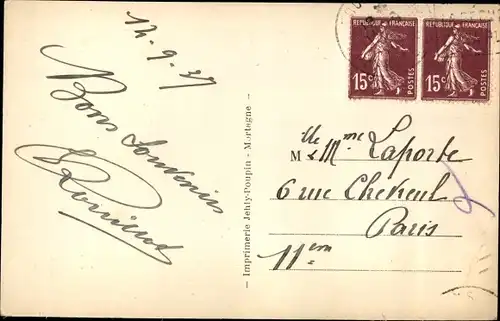 12.9.37
Bons Souvenirs
Imprimerie Jehly-Poupin - Mortagne
REPUBLIQUE FRANÇAISE
15c
POSTES
REPUBLIQUE FRANÇAISE
15c
POSTES
Mlle Mme Laporte
6 rue Chevreul
Paris
11ème